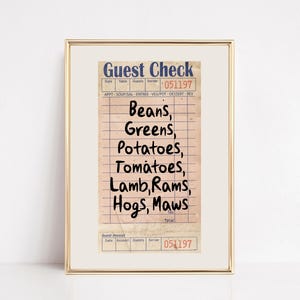 Guest Check
Date Table Guests Server 051197
APPT-SOUP/SAL-ENTREE-VEG/POT-DESSERT-BEV
Beans,
Greens,
Potatoes,
Tomatoes,
Lamb,Rams,
Hogs, Maws
Tax
Total
Guest Receipt
Date Amount Guests Server 051197